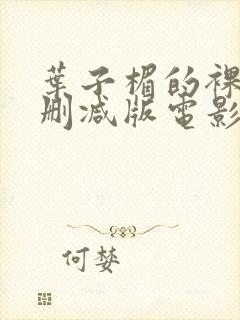 葉子楣的裸
刪減版電影
何婪